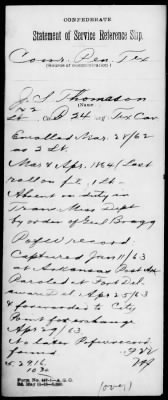 CONFEDERATE
Statement of Service Reference Slip.
Com'r. Pen. Tex
(Source of communication.)
J. S. Thomason
(Name.)
Lt D 24 Tex Cav
Enrolled Mar 21/62
as 2 Lt.
Mar & Apr. 1864 (last
roll on file) 1 Lt-
Absent on duty in
Trans Miss Dept
by order of Genl Bragg
record
Captured Jan 11/63
at Arkansas Post Ark
Paroled at Fort Del-
aware Del Apr 25/63
& forwarded to City
Point for exchange
Apr 29/63
No later
found.
Form No.
(over)